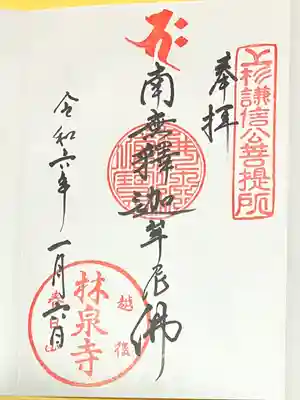 上杉謙信公菩提所
奉拝
南無釋迦牟尼佛
越後
春日山
林泉寺
令和六年一月六日